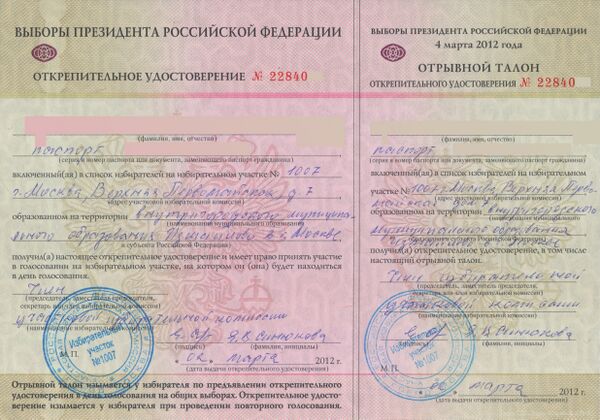 ВЫБОРЫ ПРЕЗИДЕНТА РОССИЙСКОЙ ФЕДЕРАЦИИ
ОТКРЕПИТЕЛЬНОЕ УДОСТОВЕРЕНИЕ № 22840
(фамилия, имя, отчество)
паспорт
(серия и номер паспорта или документа, заменяющего паспорт гражданина)
включенный(ая) в список избирателей на избирательном участке № 1007
г. Москва, Верхняя Первомайская, д. 7
(адрес участковой избирательной комиссии)
образованном на территории внутригородского муниципаль
ного образования в г. Москве
(наименование субъекта Российской Федерации)
получил(а) настоящее открепительное удостоверение и имеет право принять участие
в голосовании на избирательном участке, на котором он (она) будет находиться
в день голосования.
Член
(председатель, заместитель председателя,
секретарь или иной член избирательной комиссии)
участковой избирательной комиссии
(наименование избирательной комиссии)
(подпись) (фамилия, инициалы)
М.П.
Избирательный участок №1007
„ 02 " марта 2012 г.
(дата выдачи открепительного удостоверения)
Отрывной талон изымается у избирателя по предъявлении открепительного
удостоверения в день голосования на общих выборах. Открепительное удосто-
верение изымается у избирателя при проведении повторного голосования.
ВЫБОРЫ ПРЕЗИДЕНТА РОССИЙСКОЙ ФЕДЕРАЦИИ
4 марта 2012 года
ОТРЫВНОЙ ТАЛОН
ОТКРЕПИТЕЛЬНОГО УДОСТОВЕРЕНИЯ № 22840
(фамилия, имя, отчество)
паспорт
(серия и номер паспорта или документа, заменяющего паспорт гражданина)
включенный(ая) в список избирателей на избирательном
участке № 1007 г. Москва, Верхняя Перво
майская
(адрес участковой избирательной комиссии)
образованном на территории внутригородского
муниципального образования
(наименование субъекта Российской Федерации)
получил(а) открепительное удостоверение, в том числе
настоящий отрывной талон.
Член избирательной
(председатель, заместитель председателя,
секретарь или иной член избирательной комиссии)
участковой комиссии
(наименование избирательной комиссии)
(подпись) (фамилия, инициалы)
М.П.
Избирательный участок №1007
„ 02 " марта 2012 г.
(дата выдачи открепительного удостоверения)